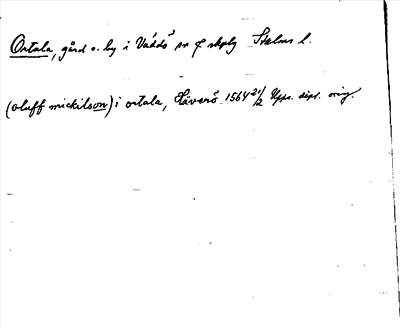 Ortala, gård o. by i Väddö sn o skplg Sthlms l.
(oluff mickilson) i ortala, Häverö 1564 21/2 Upps. dipl. orig.